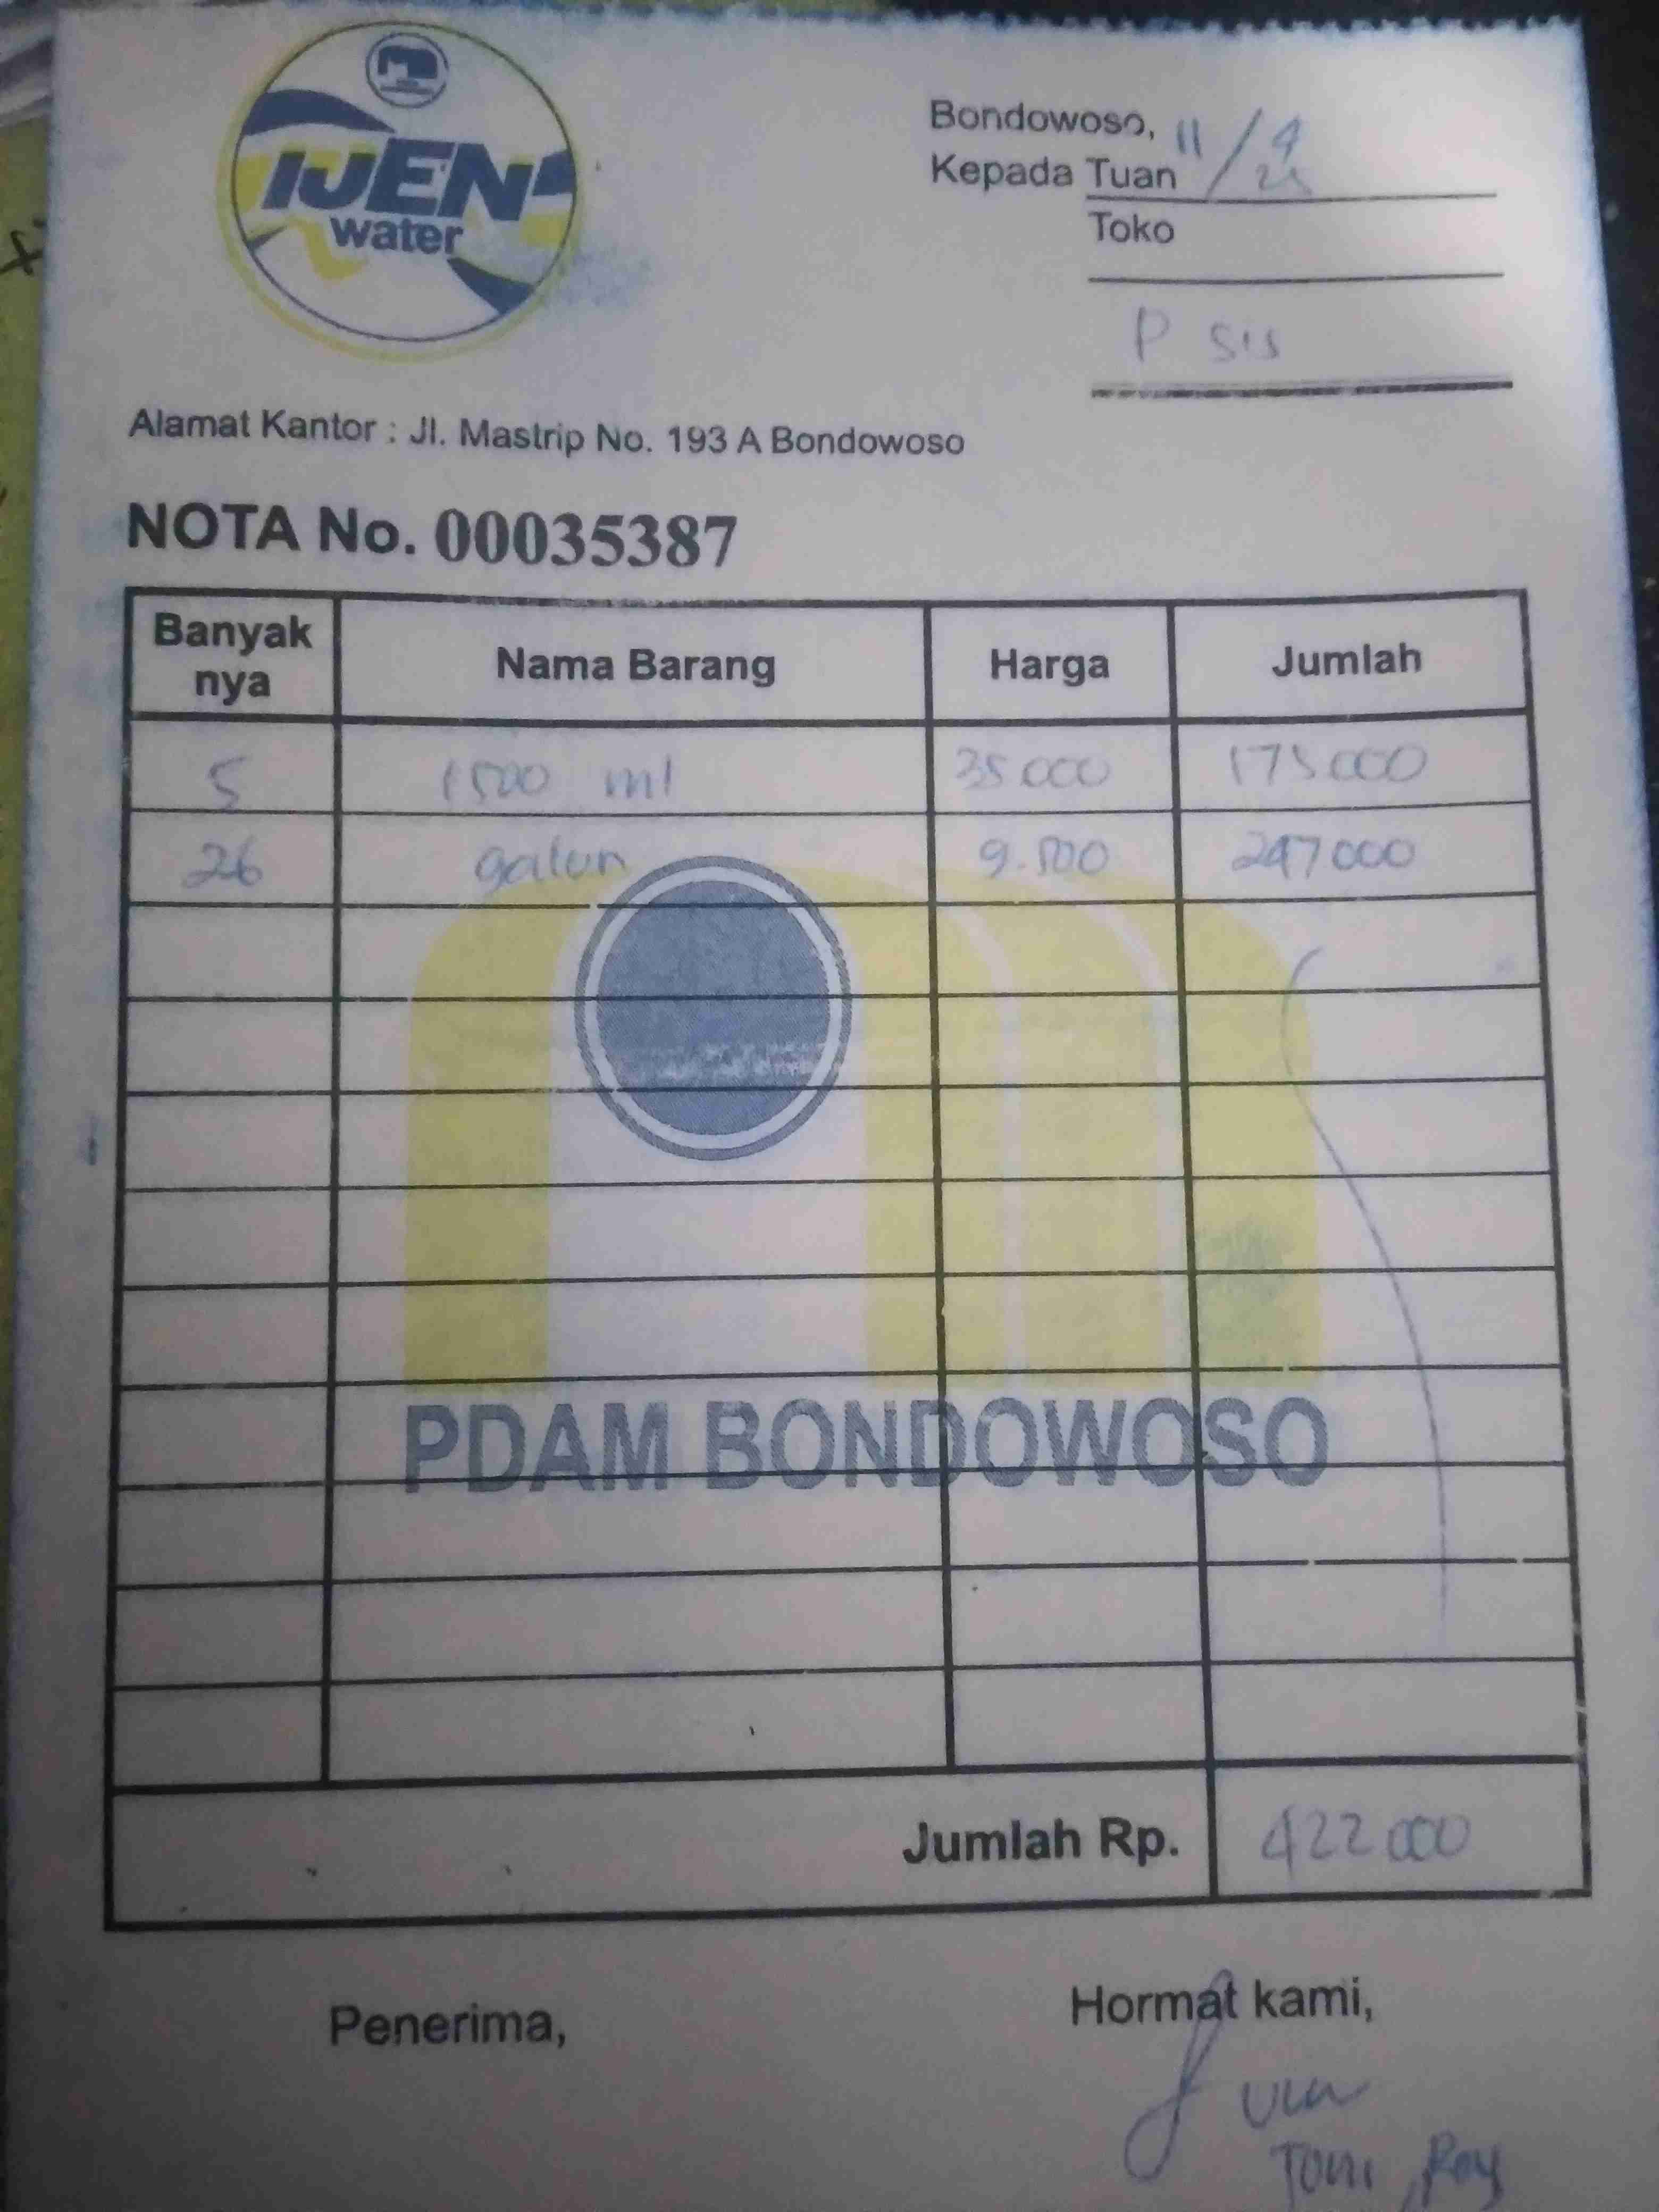 IJEN
water
Bondowoso, 11/4
Kepada Tuan
Toko
P sis
Alamat Kantor : Jl. Mastrip No. 193 A Bondowoso
NOTA No. 00035387
Banyak nya Nama Barang Harga Jumlah
5 1500 ml 35.000 175000
26 galon 9.500 247000
PDAM BONDOWOSO
Jumlah Rp. 422000
Penerima, Hormat kami,
Toni, Roy